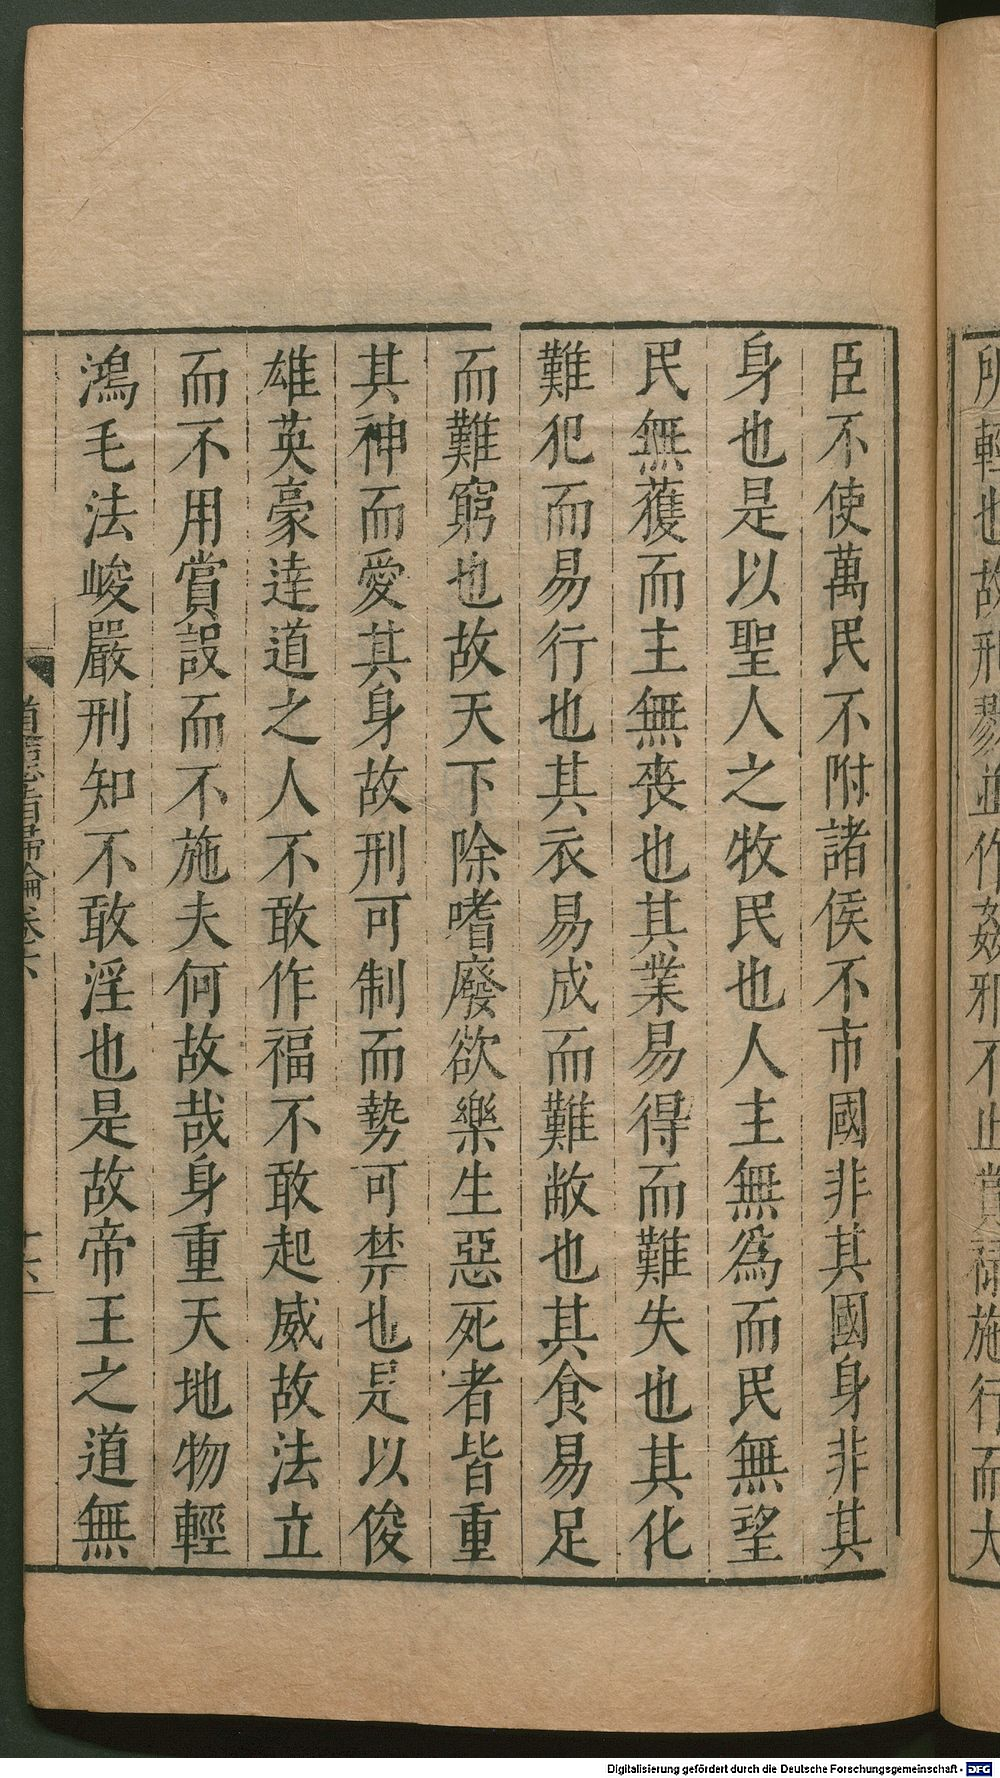 所輕也故刑戮並作姦邪不止賞祿施行而大
臣不使萬民不附諸侯不市國非其國身非其
身也是以聖人之牧民也人主無爲而民無望
民無蒦而主無喪也其業易得而難失也其化
難犯而易行也其衣易成而難敝也其食易足
而難窮也故天下除嗜廢欲樂生惡死者皆重
其神而愛其身故刑可制而勢可禁也是以俊
雄英豪達道之人不敢作福不敢起威故法立
而不用賞設而不施夫何故哉身重天地物輕
鴻毛法峻嚴刑知不敢淫也是故帝王之道無
道德指歸論卷六
十六
Digitalisierung gefördert durch die Deutsche Forschungsgemeinschaft - DFG